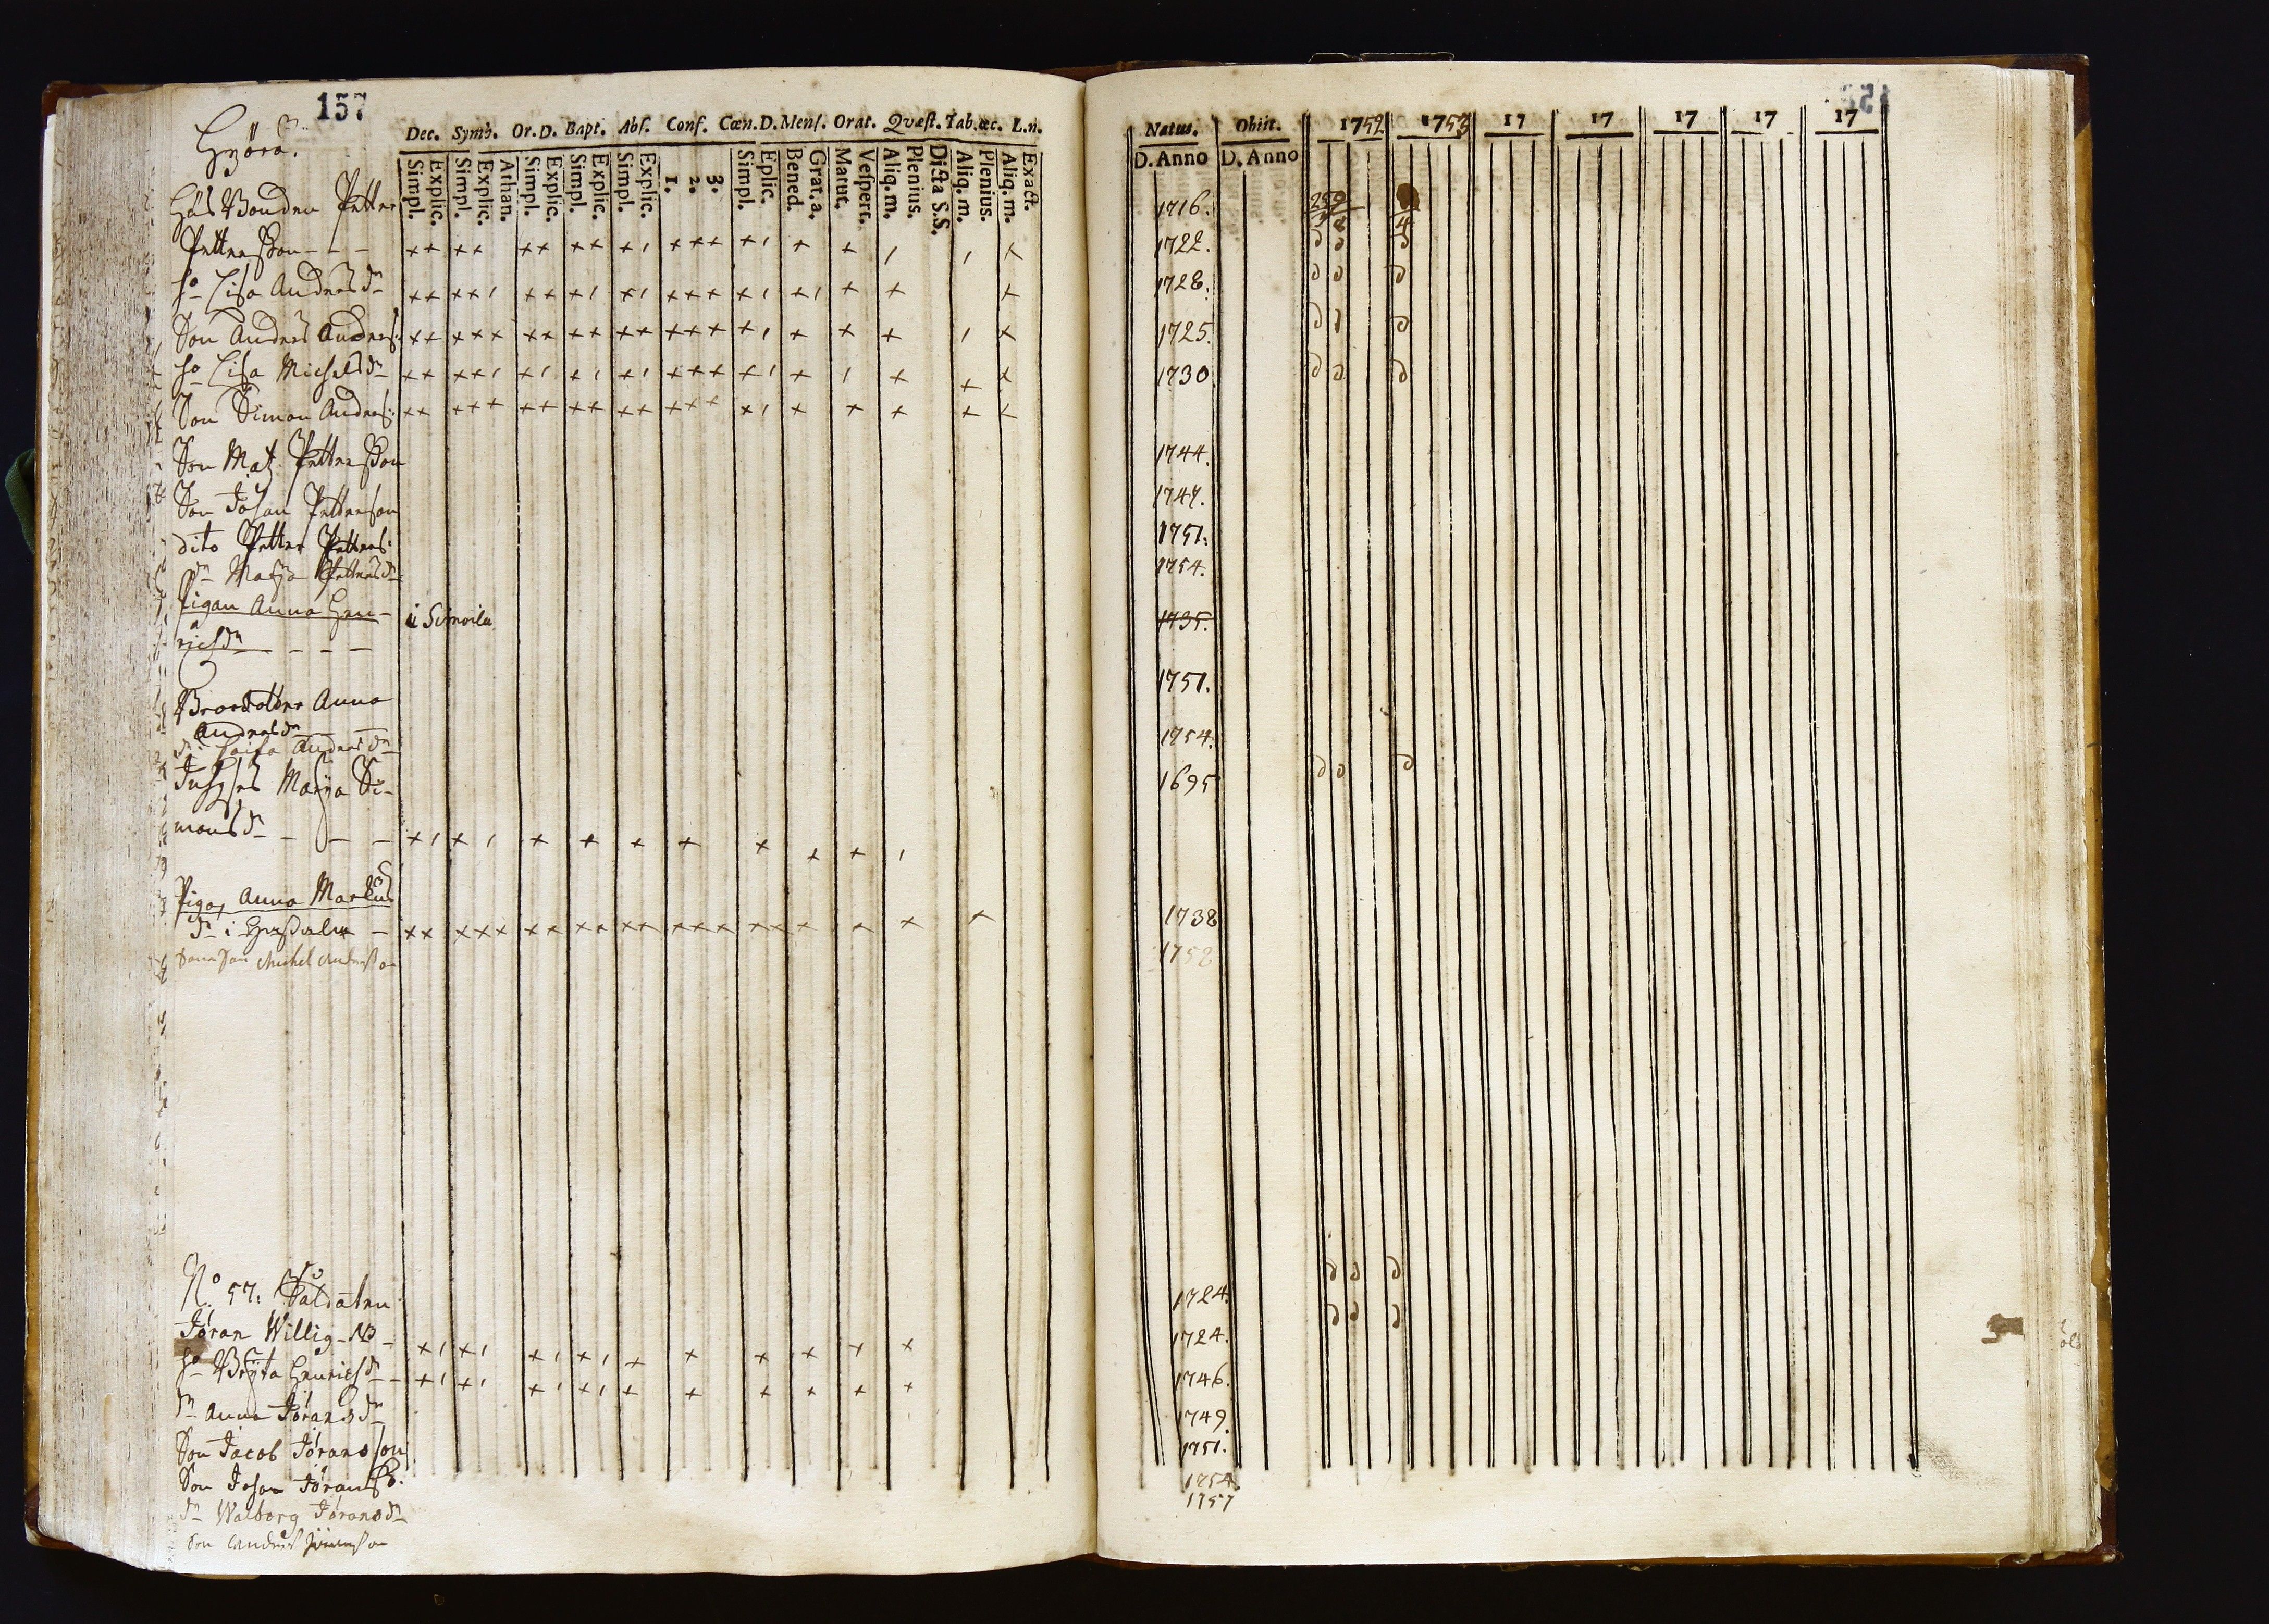 157
Hyöra.
Dec. Symb. Or. D. Bapt. Abs. Conf. Cœn. D. Mens. Orat. Qvæst. Tab. œc. L. n.
Simpl. Explic. Simpl. Explic. Athan. Simpl. Explic. Simpl. Explic. Simpl. Explic. 1. 2. 3. Simpl. Eplic. Bened. Grat. a. Matut. Vespert. Aliq. m. Plenius. Dicta S.S. Aliq. m. Plenius. Aliq. m. Exact.
Hus Bonden Petter
Pettersson - - -
ho Lisa Andersdr
Son Anders Anders:
ho Lisa Michelsdr
Son Simon Anders:
Son Matz Pettersson
Son Johan Petterson
dito Petter Petters:
dr Marja Pettersdr
Pigan Anna Hen-
richsdr - - - -
i Simoila
Brorsdotter Anna
Andersdr
dr Caisa Andersdr
Inhyses Marja Si-
monsdr - - -
Piga, Anna Markus
dr i -
Sone Son Michel Andersson
No 57: Soldaten
Jöran Willig - NB -
ho Bryta Henrichsdr -
dr Anna Jöransdr
Son Jacob Jöransson
Son Johan Jöransso.
dr Walborg Jöransdr
Son Anders Jöransson
Natus. Obiit. 1752 1753 17 17 17 17 17
D. Anno D. Anno
1716.
1722.
1728.
1725.
1730
1744.
1747.
1751.
1754.
1735.
1751.
1754.
1695
1738
1752
1724.
1724.
1746.
1749.
1751.
1754.
1757